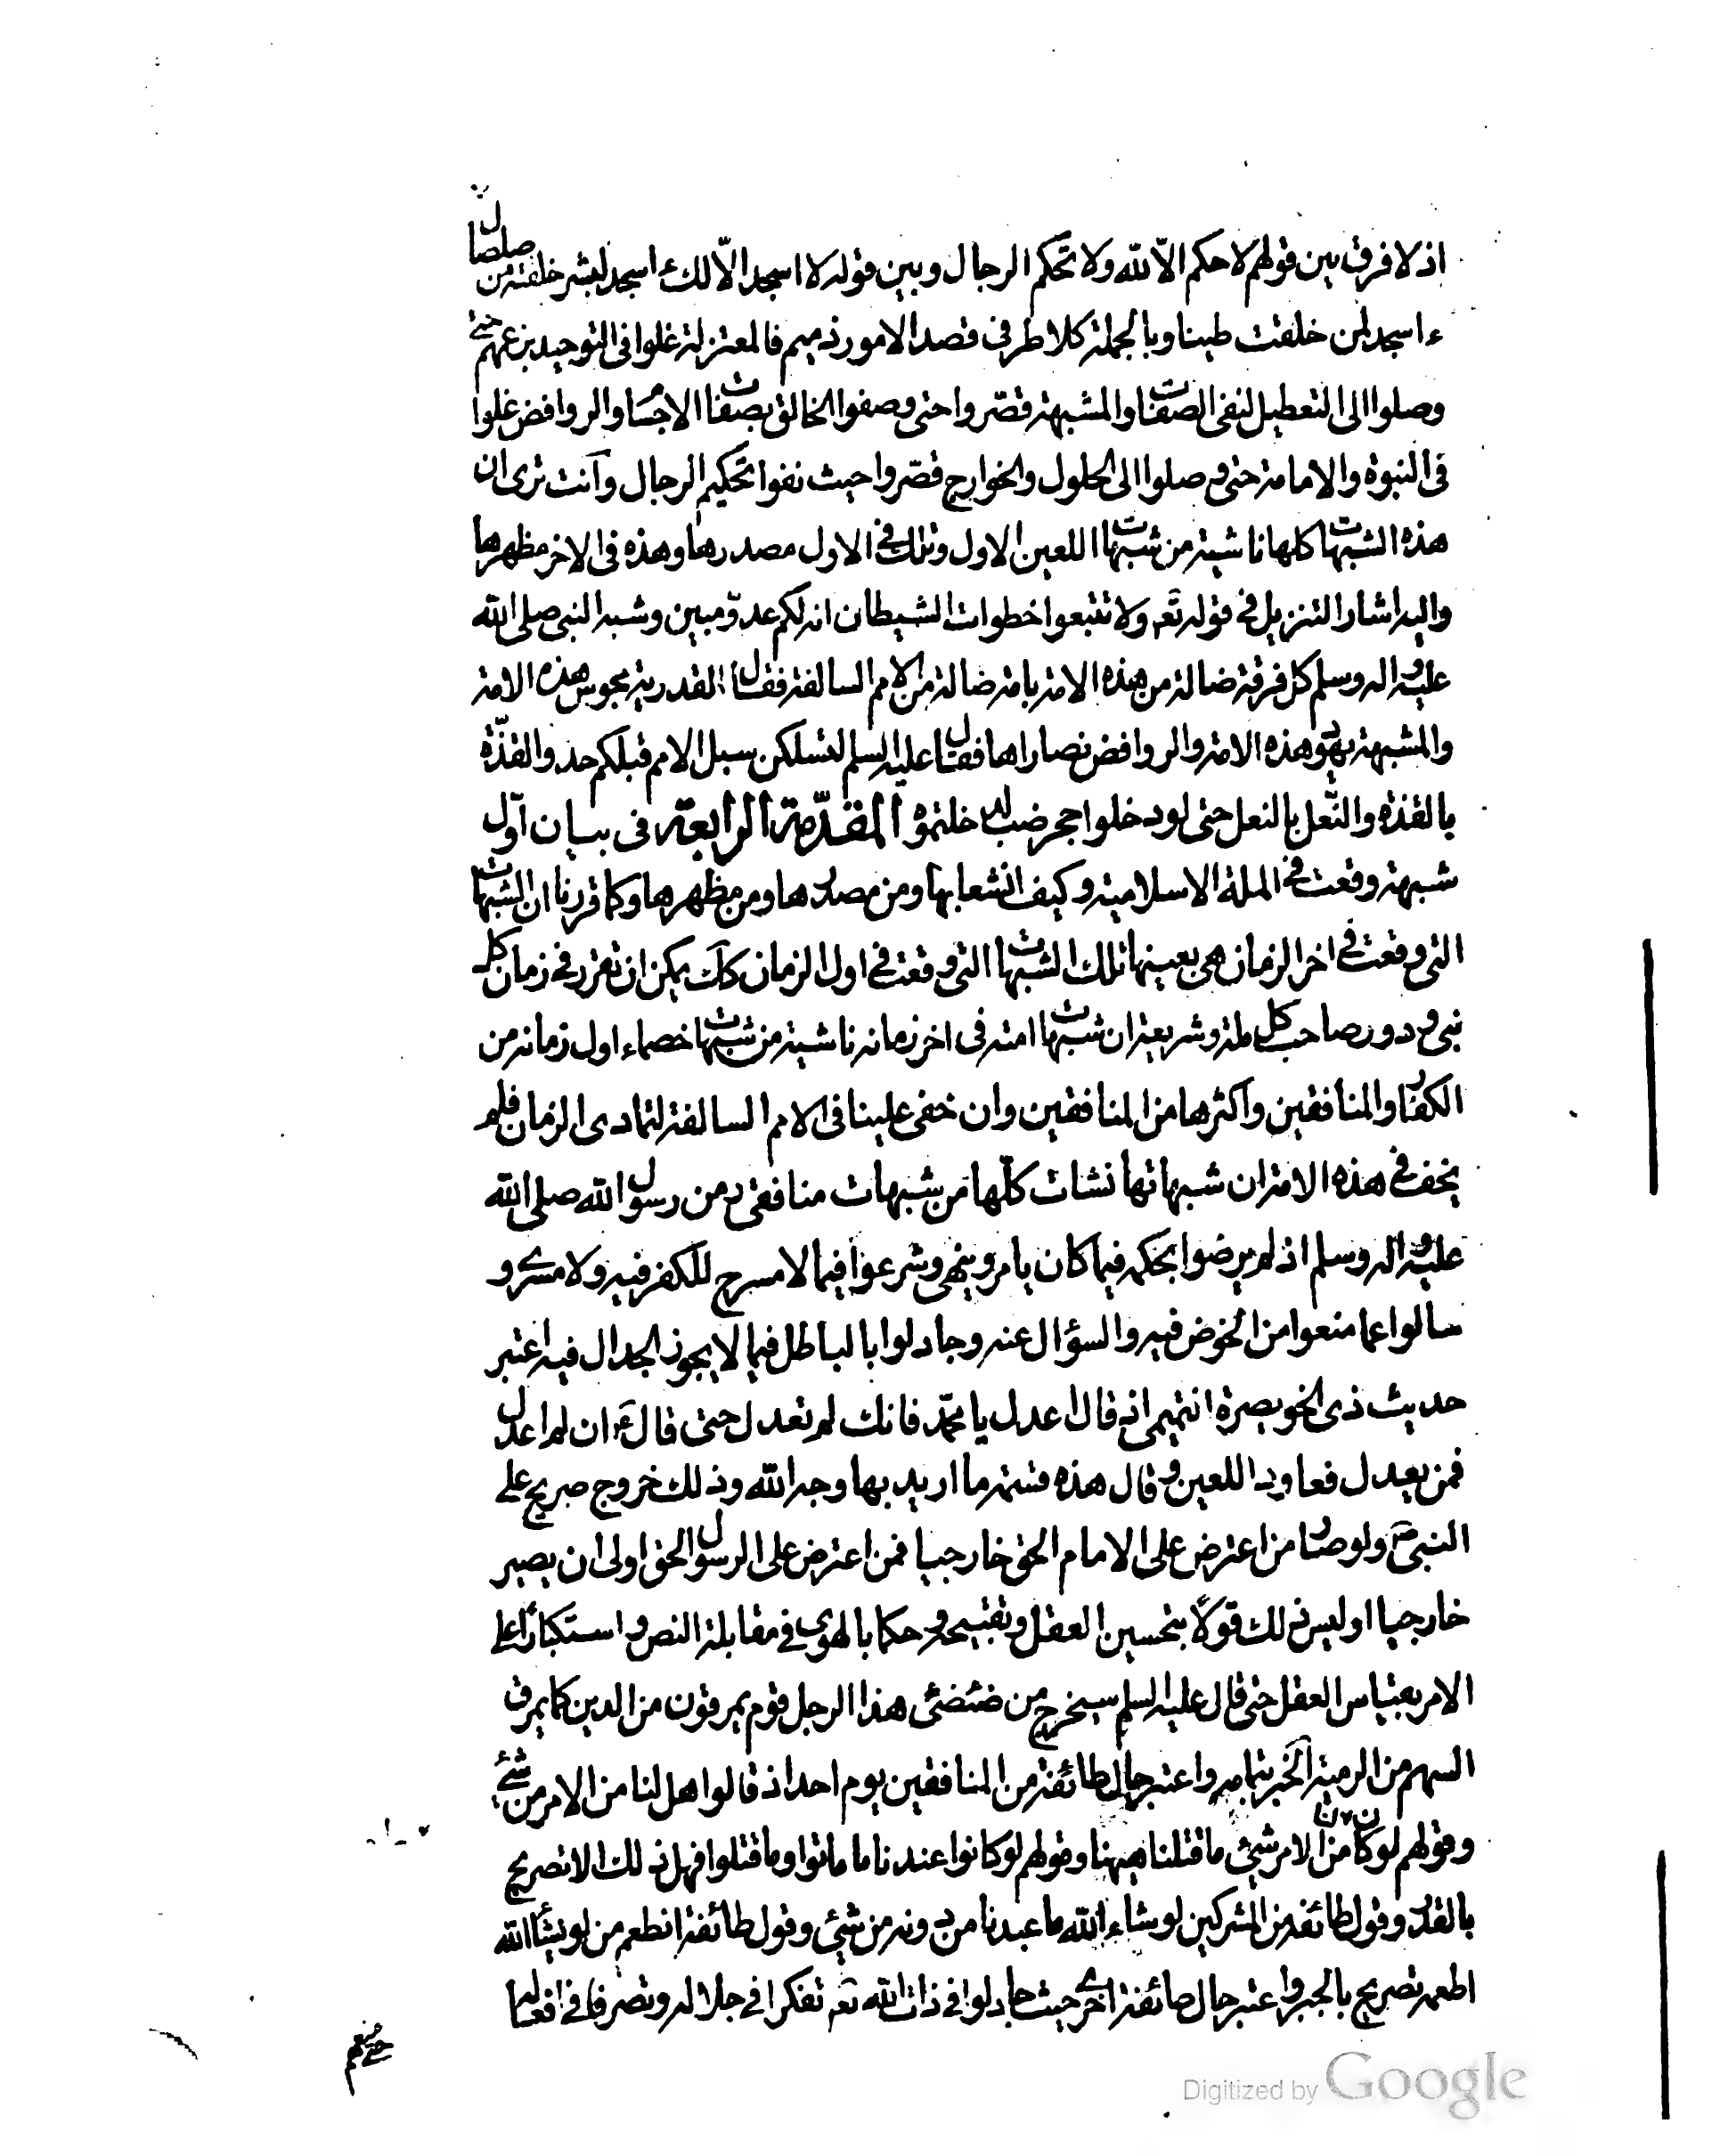 اذ لا فرق بين قولهم لا حكم الّا لله ولا تحكم الرجال وبين قوله لا اسجد الّا لك ءاسجد لبشر خلقته من صلصال
ءاسجد لمن خلقت طينا وبالجملة كلا طرفى قصد الامور ذميم فالمعتزلة غلوا فى التوحيد بزعمهم حتى
وصلوا الى التعطيل لنفى الصفات والمشبهة قصّروا حتى وصفوا الخالق بصفات الاجسام والروافض غلوا
فى النبوة والامامة حتى وصلوا الى الحلول والخوارج قصّروا حيث نفوا تحكيم الرجال وانت ترى ان
هذه الشبهات كلها ناشية من شبهات اللعين الاول وتلك فى الاول مصدرها وهذه فى الاخر مظهرها
واليه اشار التنزيل فى قوله تعه ولا تتبعوا خطوات الشيطان انه لكم عدوّ مبين وشبه النبى صلى الله
عليه واله وسلم كل فرقة ضالة من هذه الامة بامة ضالة من الامم السالفة فقال القدرية مجوس هذه الامة
والمشبهة يهود هذه الامة والروافض نصاراها فقال عليه السلم لتسلكن سبل الامم قبلكم حذو القذّة
بالقذة والنّعل بالنعل حتى لو دخلوا جحر ضب لدخلتموه المقدّمة الرابعة فى بيان اوّل
شبهة وقعت فى الملة الاسلامية وكيف انشعابها ومن مصدرها ومن مظهرها وكما قررنا ان الشبهات
التى وقعت فى اخر الزمان هى بعينها تلك الشبهات التى وقعت فى اول الزمان كك يمكن ان نقرر فى زمان كل
نبى ودور صاحب كل ملة وشريعة ان شبهات امته فى اخر زمانه ناشية من شبهات خصماء اول زمانه من
الكفار والمنافقين واكثرها من المنافقين وان خفى علينا فى الامم السالفة لتمادى الزمان فلم
يخف فى هذه الامة ان شبهاتها نشات كلّها من شبهات منافقى زمن رسول الله صلى الله
عليه واله وسلم اذ لم يرضوا بحكمه فيما كان يامر وينهى وشرعوا فيما لا مسرح للكفر فيه ولا مسرى و
سالوا عما منعوا من الخوض فيه والسؤال عنه وجادلوا بالباطل فيما لا يجوز الجدال فيه اعتبر
حديث ذى الخويصرة التميمى اذ قال اعدل يا محمّد فانك لم تعدل حتى قال ع ان لم اعدل
فمن يعدل فعاود اللعين وقال هذه قسمة ما اريد بها وجه الله وذلك خروج صريح على
النبى ص ولو صار من اعترض على الامام الحق خارجيا فمن اعترض على الرسول الحق اولى ان يصير
خارجيا اوليس ذلك قولًا بتحسين العقل وتقبيحه وحكما بالهوى فى مقابلة النص واستكبارًا على
الامر بقياس العقل حتى قال عليه السلم سيخرج من ضئضئى هذا الرجل قوم يمرقون من الدين كما يمرق
السهم من الرمية الخبر بتمامه واعتبر حال طائفة من المنافقين يوم احد اذ قالوا هل لنا من الامر من شئ
وقولهم لو كان لنا من الامر شئ ما قتلنا ههنا وقولهم لو كانوا عندنا ما ماتوا وما قتلوا فهل ذلك الا تصريح
بالقدر وقول طائفة من المشركين لو شاء الله ما عبدنا من دونه من شئ وقول طائفة انطعم من لو يشاء الله
اطعمه تصريح بالجبر واعتبر حال طائفة اخرى حيث جادلوا فى ذات الله تعه تفكرا فى جلاله وتصرفا فى افعاله
حتى منعهم
Digitized by Google